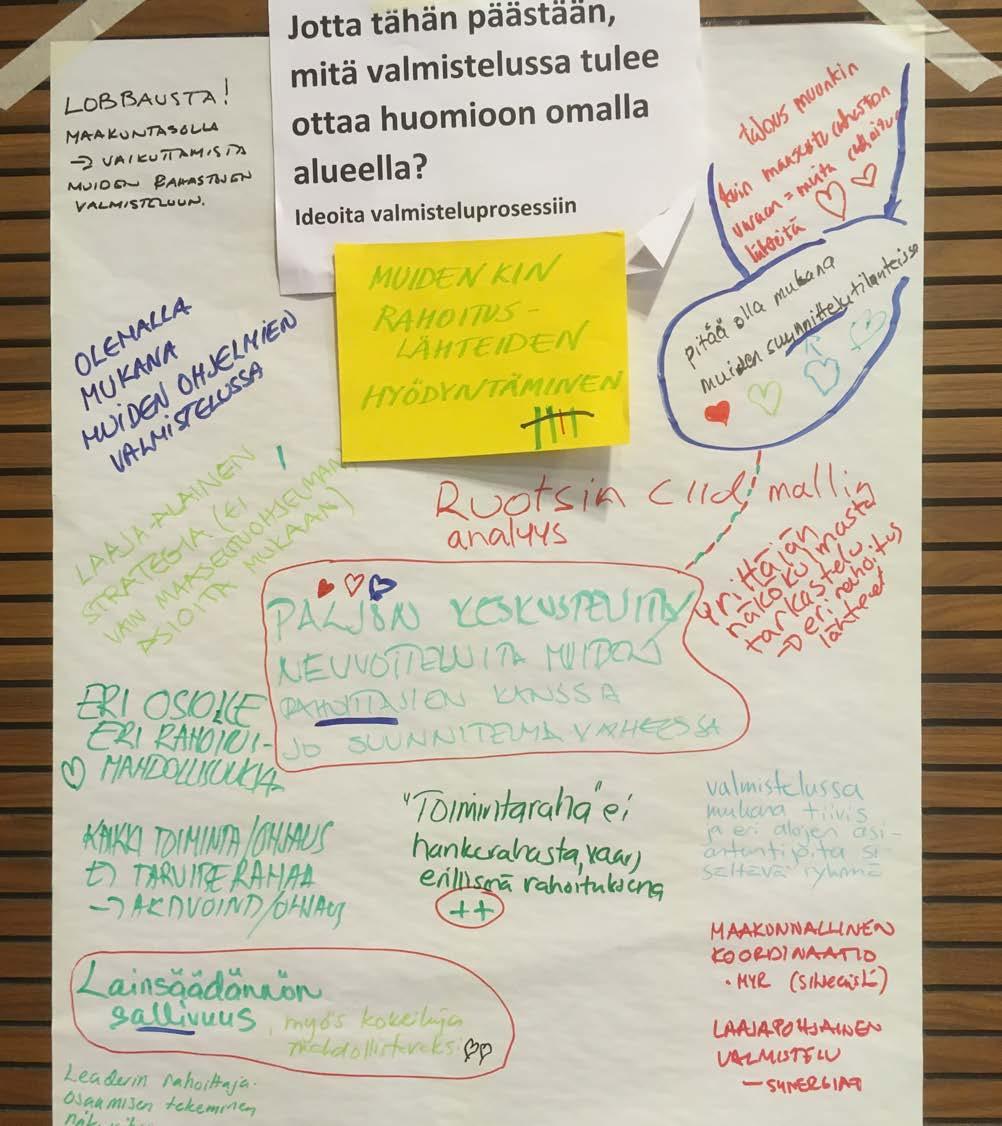 Jotta tähän päästään,
mitä valmistelussa tulee
ottaa huomioon omalla
alueella?
Ideoita valmisteluprosessiin
LOBBAUSTA!
MAAKUNTASOLLA
→ VAIKUTTAMISTA
MUIDEN RAHASTOJEN
VALMISTELUUN.
talous muunkin
kuin maaseuturahaston
varaan = muita
lähteitä
MUIDENKIN
RAHOITUS-
LÄHTEIDEN
HYÖDYNTÄMINEN
pitää olla mukana
muiden suunnittelutilanteissa
OLEMALLA
MUKANA
MUIDEN OHJELMIEN
VALMISTELUSSA
LAAJA-ALAINEN
STRATEGIA (EI
VAIN MAASEUTUOHJELMAN
ASIOITA MUKAAN)
Ruotsin CLLD mallin
analyys
yrittäjän
näkökulmasta
tarkastelu
→ eri rahoitus
lähteet
PALJON KESKUSTELUITA/
NEUVOTTELUITA MUIDEN
RAHOITTAJIEN KANSSA
JO SUUNNITELMAVAIHEESSA
ERI OSIOILLE
ERI RAHOITUS-
MAHDOLLISUUKSIA
KAIKKI TOIMINTA/OHJAUS
EI TARVITSE RAHAA
→ AKTIVOINTI/OHJAUS
"Toimintaraha" ei
hankerahasta, vaan
erillisinä rahoituksena
++
valmistelussa
mukana tiivis
ja eri alojen asi-
antuntijoita si-
sältävä ryhmä
MAAKUNNALLINEN
KOORDINAATIO
• MYR (sihteeristö)
LAAJAPOHJAINEN
VALMISTELU
— SYNERGIAT
Lainsäädännön
sallivuus, myös kokeiluja
mahdollistavaksi
Leaderin rahoittaja.
osaamisen tekeminen